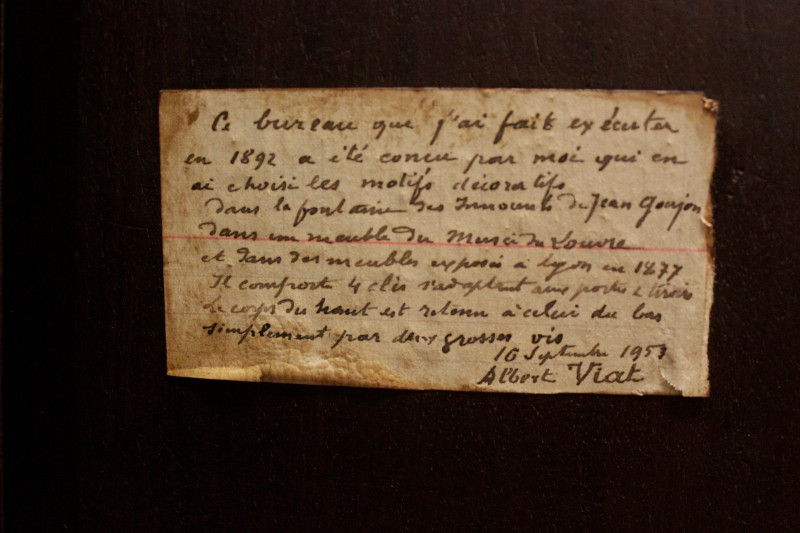 Ce bureau que j'ai fait exécuter
en 1892 a été concu par moi qui en
ai choisi les motifs décoratifs
dans la fontaine des Innocents de Jean Goujon
dans un meuble du Musée du Louvre
et dans des meubles exposés à Lyon en 1877
Il comporte 4 clès s'adaptant aux portes & tiroirs
Le corps du haut est retenu à celui du bas
simplement par deux grosses vis
16 Septembre 1953
Albert Viat